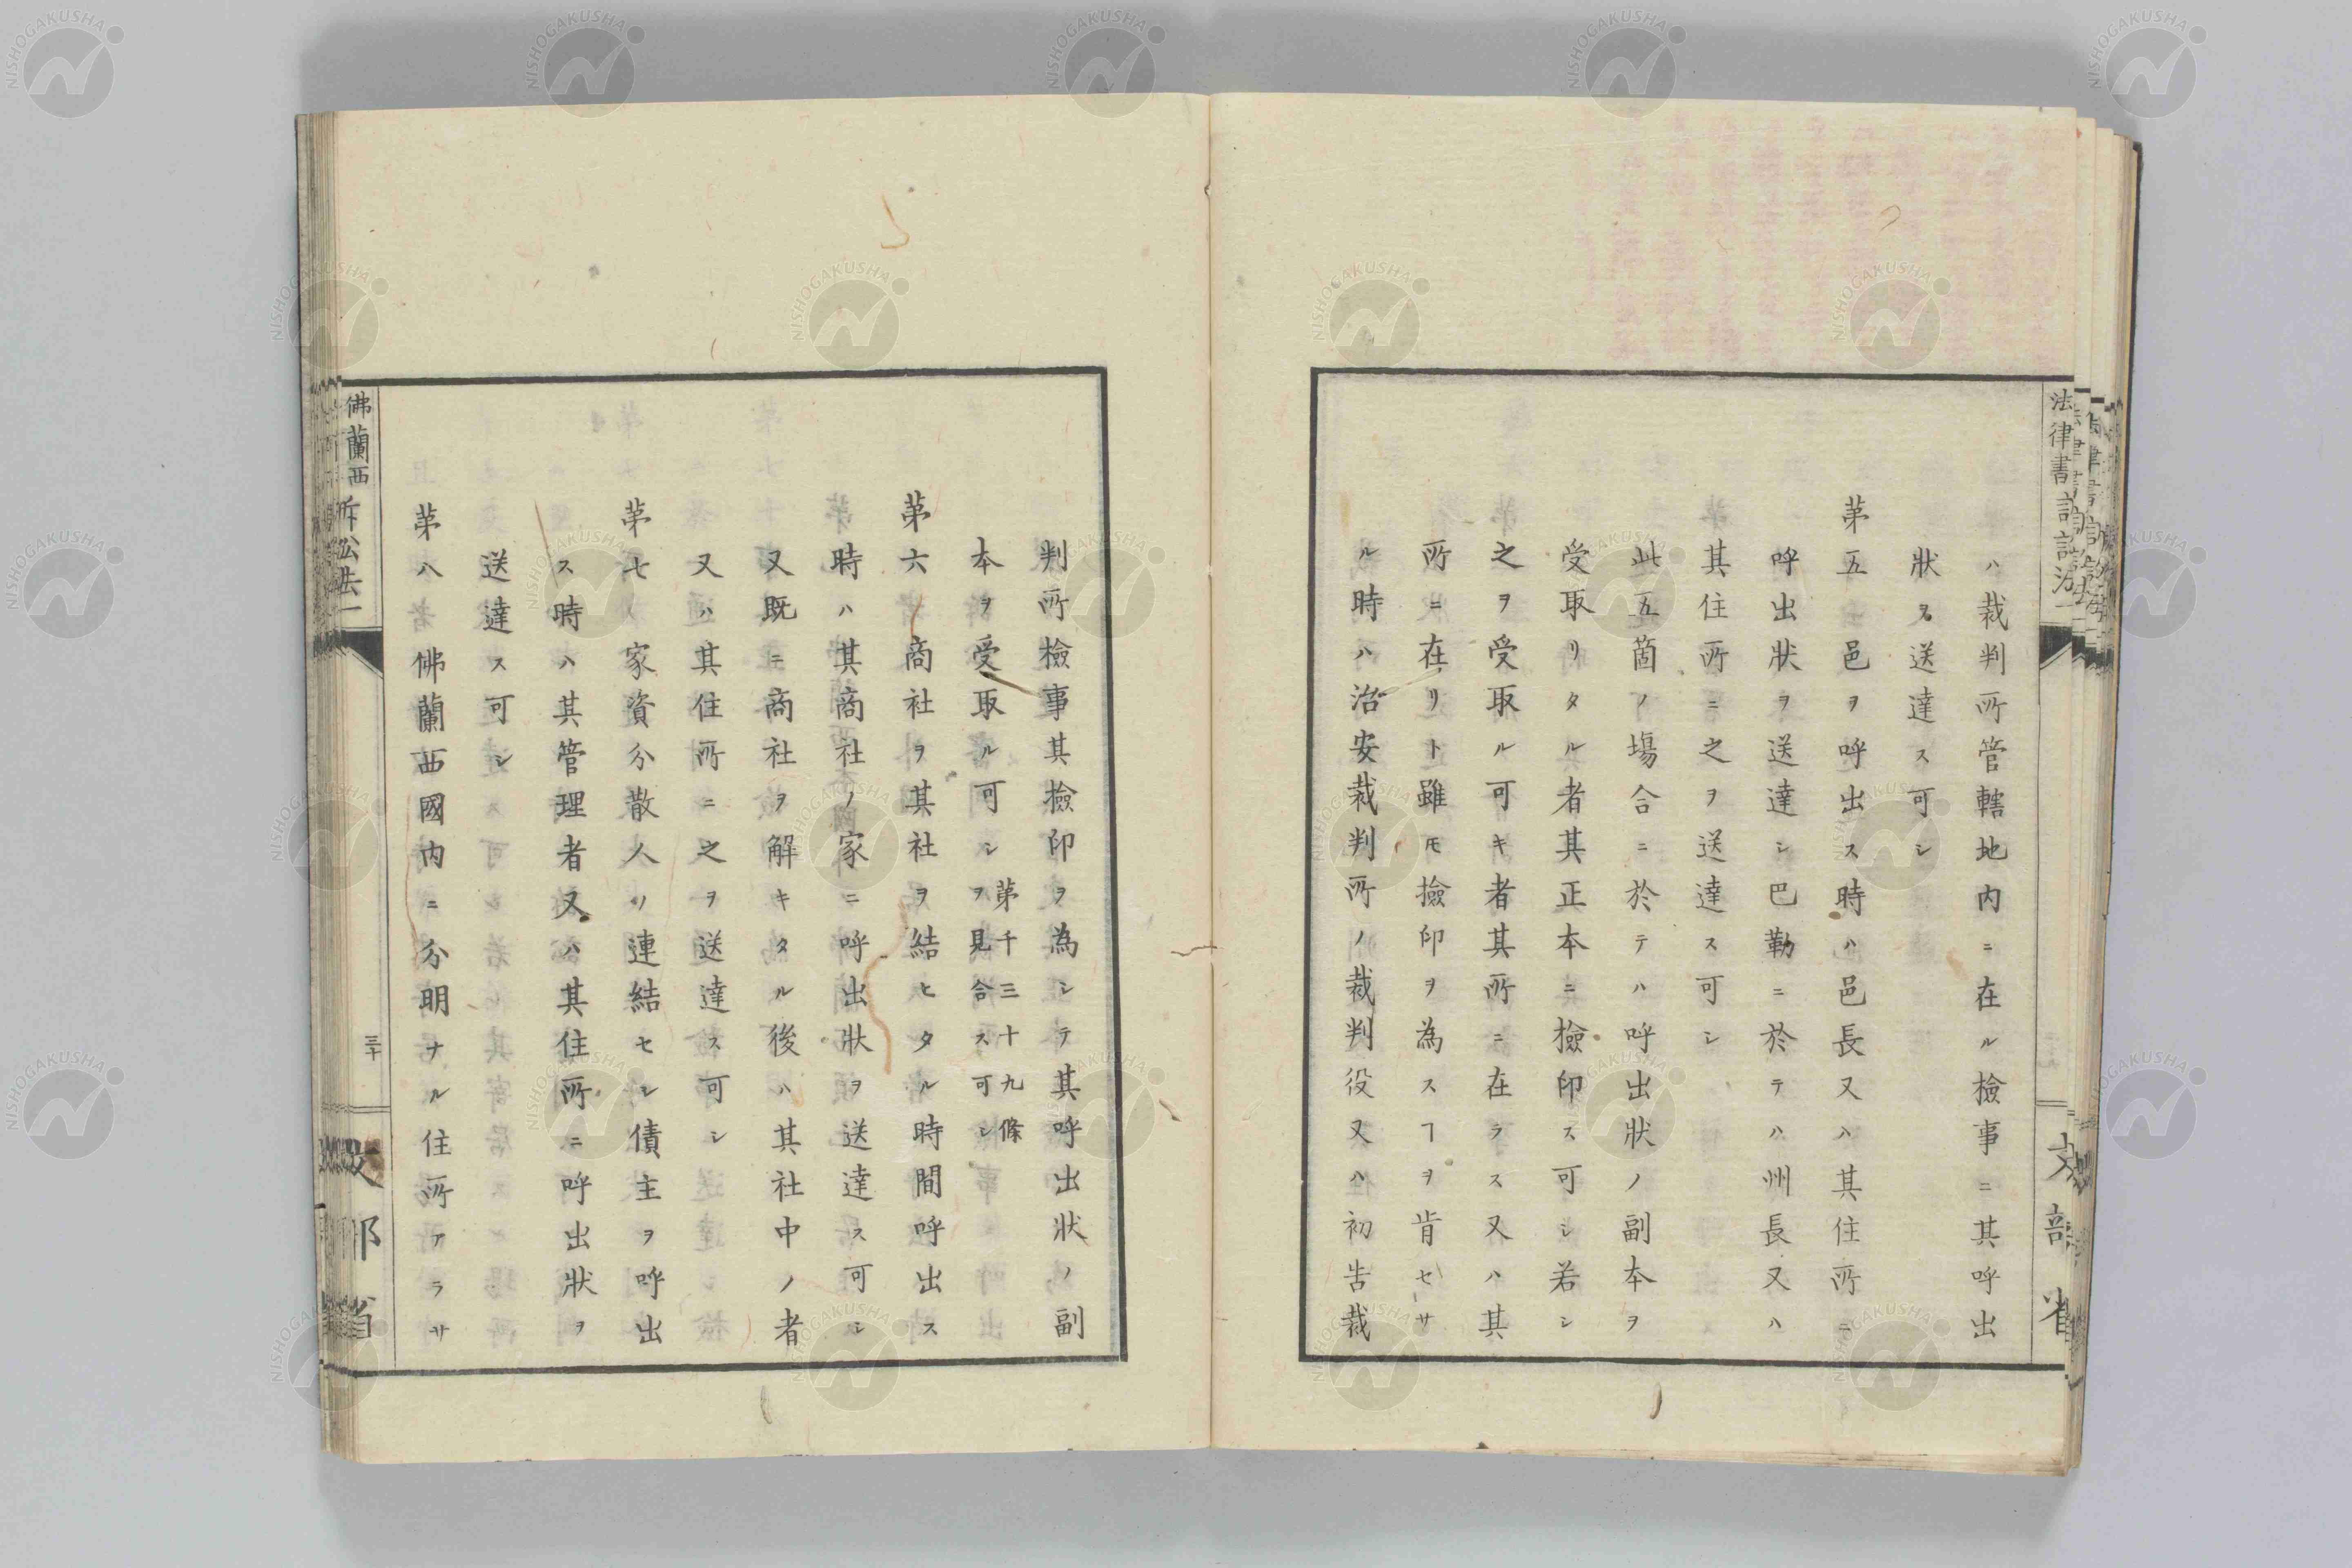 ハ裁判所管轄地内ニ在ル檢事ニ其呼出
狀ヲ送達ス可シ
第五 邑ヲ呼出ス時ハ邑長又ハ其住所ニ
呼出狀ヲ送達シ巴勒ニ於テハ州長又ハ
其住所ニ之ヲ送達ス可シ
此五箇ノ塲合ニ於テハ呼出狀ノ副本ヲ
受取リタル者其正本ニ撿印ス可シ若シ
之ヲ受取ル可キ者其所ニ在ラス又ハ其
所ニ在リト雖モ撿印ヲ為スヿヲ肯セサ
ル時ハ治安裁判所ノ裁判役又ハ初告裁
判所檢事其撿印ヲ為シテ其呼出狀ノ副
本ヲ受取ル可シ
第千三十九條
ヲ見合ス可シ
第六 商社ヲ其社ヲ結ヒタル時間呼出ス
時ハ其商社ノ家ニ呼出狀ヲ送達ス可シ
又既ニ商社ヲ解キタル後ハ其社中ノ者
又ハ其住所ニ之ヲ送達ス可シ
第七 家資分散人ノ連結セシ債主ヲ呼出
ス時ハ其管理者又ハ其住所ニ呼出狀ヲ
送達ス可シ
第八 佛蘭西國内ニ分明ナル住所アラサ
佛蘭西訴訟法一
三十
文部省
NISHOGAKUSHA